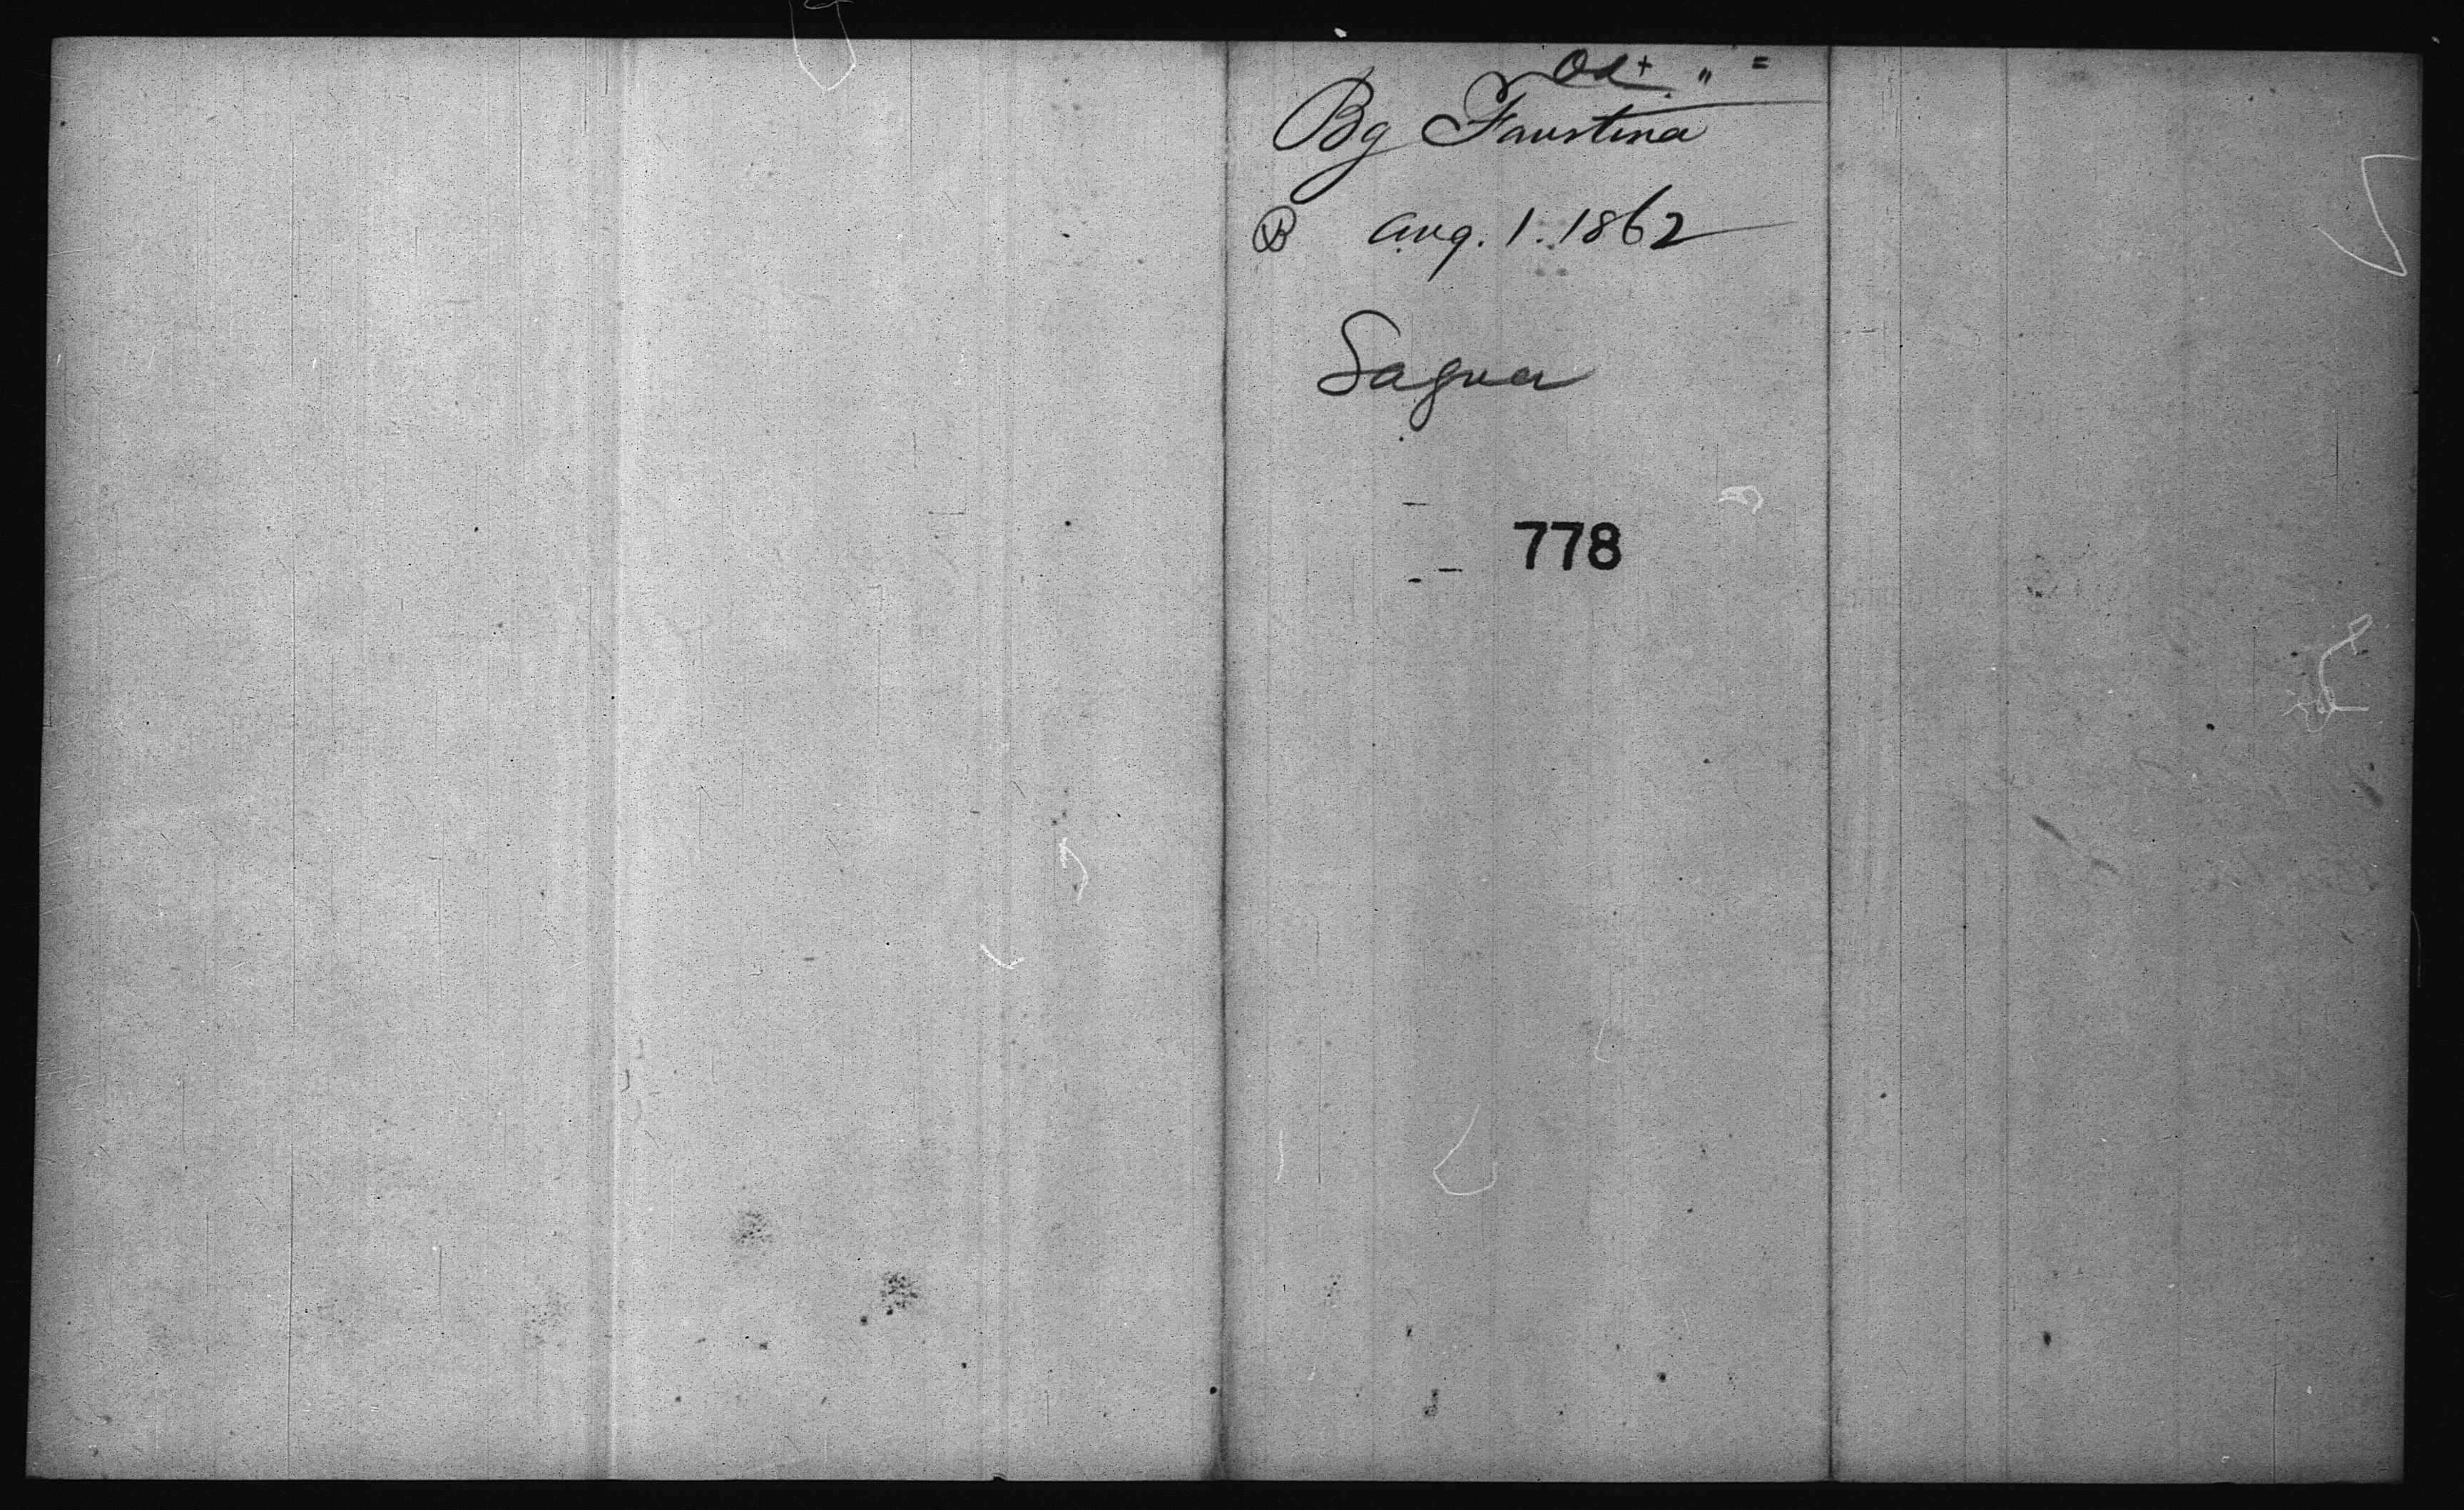 Bg Faustina
B Aug. 1. 1862
Sagua
778